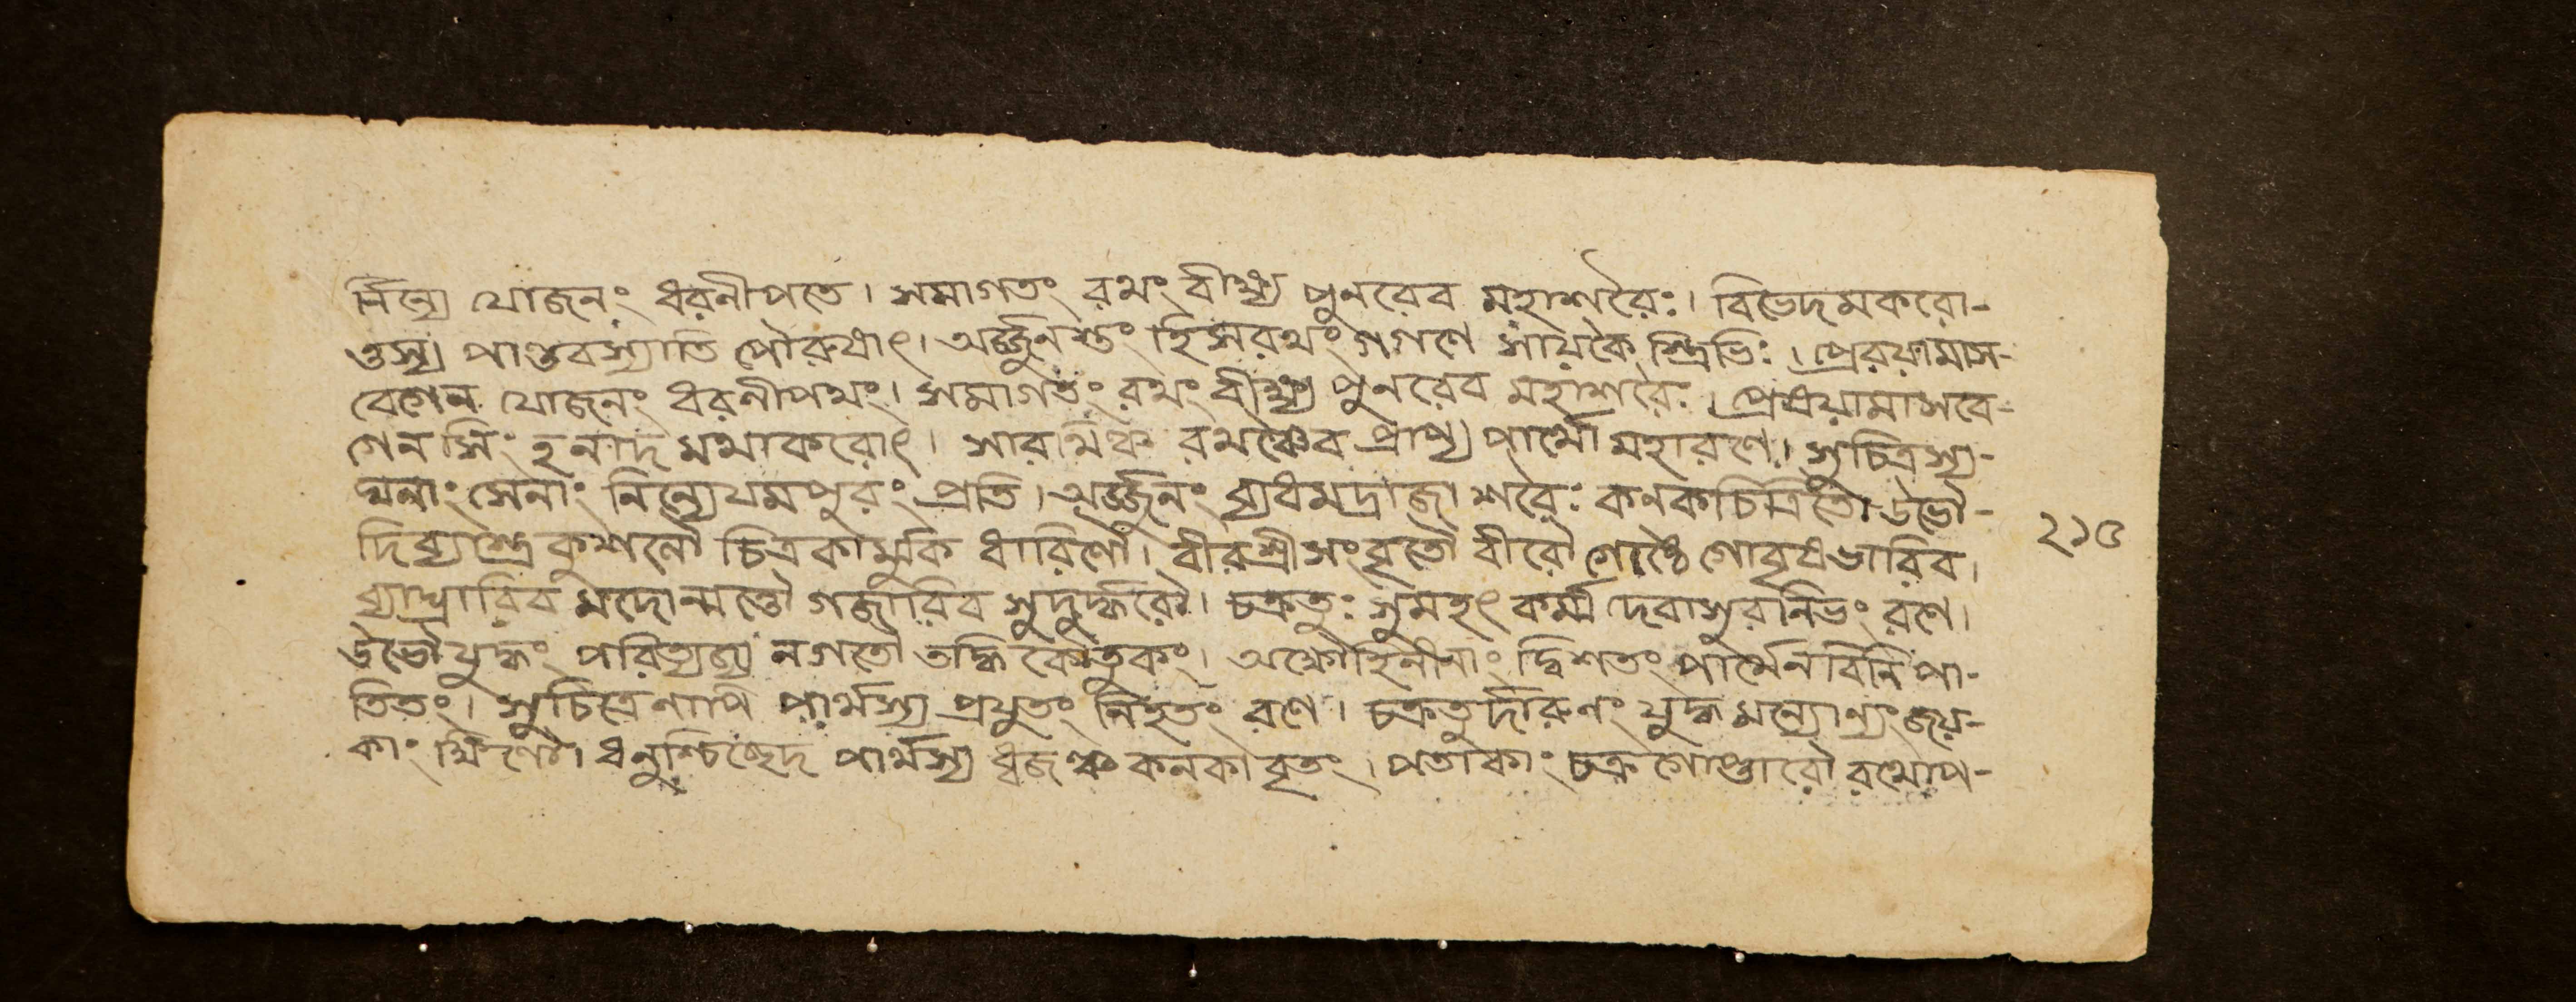 নিন্যে যোজনং ধরনীপতে। সমাগতং রথং বীক্ষ্য পুনরেব মহাশরৈঃ। বিভেদমকরো-
ত্তস্য পাণ্ডবস্যাতি পৌরুষাৎ। অর্জ্জুনস্তং হি সরথং গগণে সায়কৈ স্ত্রিভিঃ। প্রেরয়ামাস-
বেগেন যোজনং ধরনীপথং। সমাগতং রথং বীক্ষ্য পুনরেব মহাশরৈঃ। প্রেষয়ামাসবে-
গেন সিংহনাদ মথাকরোৎ। সারথিঞ্চ রথঞ্চৈব প্রাপ্য পার্থো মহারণে। সুচিত্রস্য-
ঘনাং সেনাং নিন্যেযমপুরং প্রতি। অর্জ্জুনং ব্যধমদ্রাজা শরৈঃ কনকচিত্রিতৌ উভৌ-
দিব্যাস্ত্রকুশলৌ চিত্রকার্মুক ধারিণৌ। বীরশ্রীসংবৃতৌ বীরৌ গোষ্ঠে গোবৃষভাবিব।
ব্যাঘ্রাবিব মদোন্মত্তৌ গর্জাবিব সুদুর্দ্ধরৌ। চক্রতুঃ সুমহৎ কর্ম্ম দেবাসুরনিভং রণে।
উভৌ যুদ্ধং পরিত্যজ্য নগতৌ তদ্ধি কৌতুকং। অক্ষৌহিনীনাং দ্বিশতং পার্থেন বিনিপা-
তিতং। সুচিত্রেণাপি পার্থস্য প্রযুতং নিহতং রণে। চক্রতুর্দারুণং যুদ্ধমন্যোন্যং জয়-
কাংক্ষিণৌ। ধনুশ্চিচ্ছেদ পার্থস্য ধ্বজঞ্চ কনকাবৃতং। পতাকাং চক্রগোপ্তারৌ রথোপ-
২১৫